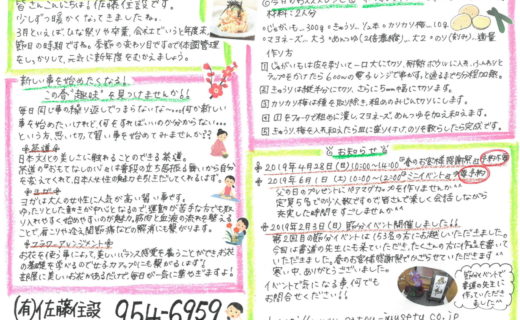 皆さんこんにちは！佐藤住設です。
少しずつ暖かくなってきましたね。
3月といえばひな祭りや卒業、会社でいうと年度末
節目の時期ですね。季節の変わり目ですので体調管理
をしっかりして、元気に新年度をむかえましょう。
新しい事を始めたくなる！
この春"趣味"を見つけませんか！！
毎日同じ事の繰り返しでつまらないな…何か新しい
事を始めたいけれど、何をすればいいのか分からない…
という方、思い切って習い事を始めてみませんか？？
茶道
日本文化の美しさに触れることのできる茶道。
茶道の"おもてなしの心"は普段の立ち居振る舞いから自分
を変えてくれて、日本人女性の魅力を引きだしてくれるはず。
ヨガ
ヨガは大人の女性に人気が高い習い事です。
ゆったりとした動きが中心となるので運動が苦手な方でも取り
入れやすく始めやすいのが魅力。筋肉と血液の流れを整える
ことで、肩こりや冷え関節痛などの解消にも繋がります。
フラワーアレンジメント
お花を使う事によって、美しいバランス感覚を養うことができ、お花
の基礎を学べるのでセンスアップにも繋がるはず！
部屋に美しいお花があるだけで毎日が一気に華やぎますよ！
(有)佐藤住設 954-6959
材料：2人分
じゃがいも…300g きゅうり…1/2本 カリカリ梅…10g
マヨネーズ…大3 めんつゆ(2倍濃縮)…大2 のり(刻み)…適量
作り方
1 じゃがいもは皮を剥いて一口大に切り、耐熱ボウルに入れ、ふんわりと
ラップをかけたら600wの電子レンジで串がすっと通るまで5分程加熱。
2 きゅうりは縦半分に切り、さらに5mm幅に切ります。
3 カリカリ梅は種を取り除き、粗めのみじん切りにします。
4 1をフォークで粗めに潰しマヨネーズ、めんつゆを和えます。
5 きゅうり、梅を入れ和えたら皿に盛り付け、のりを散らしたら完成です。
お知らせ
2019年4月28日(日)10:00〜14:00 春のお客様感謝祭 予約不要
2019年6月1日(土)10:00〜12:00 ミニイベント 要予約
父の日のプレゼントにハンドメイドマグカップを作りませんか
定員5名での少人数ですので皆さんで楽しく会話しながら
充実した時間をすごしませんか
2019年2月3日(日)節分イベント開催しました！！
第2回目の節分イベントは153名の方にお越しいただきました。
今回は書道の先生にも来ていただき、たくさんの方に作品を書いて
いただきました。春のお客様感謝祭でかざらせていただきます
寒い中、ありがとうございました。
イベントで気になる事何でも
お問合せください！！
節分イベントで
書道の先生に
作っていただき
ました